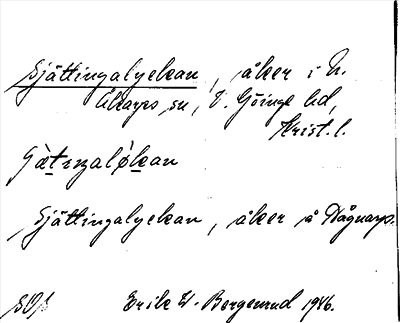 Gjättingalyckan, åker i N.
Åkarps sn, V. Göinge hd,
Krist. l.
Gätingalökan
Gjättingalyckan, åker å Vågnarp.
Erik W. Bergenrud 1946.